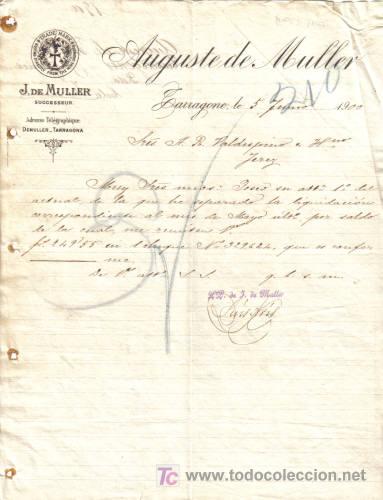 TRADE MARK
Auguste de Muller
J. DE MULLER
SUCCESSEUR
Adresse Télégraphique
DEMULLER_TARRAGONA
Tarragone, le 5 Junio 1900
210
Sres A. R. Valdespino e Hno
Jerez
Muy Sres mios: Poseo su atta 1º del
actual de la que he separado la liquidación
correspondiente al mes de Mayo ulto por saldo
de la cual me remiten
249'55 en 1 cheque Nº 322624, que es confor
me.
De Vs atto S. S. q. b. s. m.
P.P. de J. de Muller
TC todocoleccion.net
www.todocoleccion.net